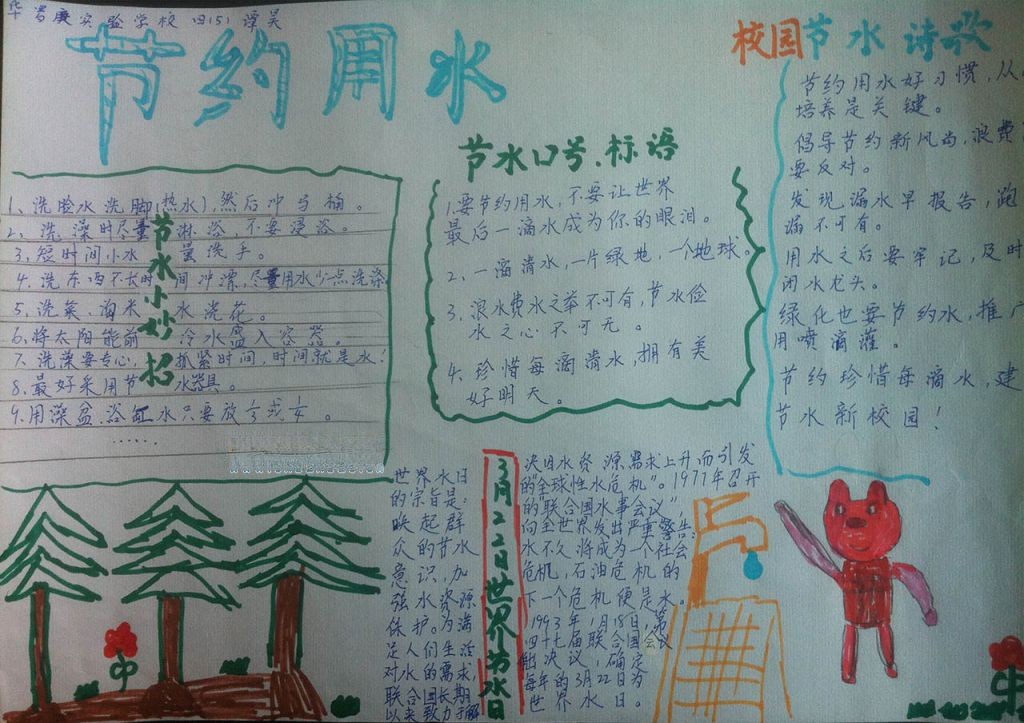 华罗庚实验学校 四(5) 谭昊
节约用水
校园节水诗歌
节约用水好习惯,从
培养是关键。
倡导节约新风尚,浪费
要反对。
发现漏水早报告,跑
漏不可有。
用水之后要牢记,及时
闭水龙头。
绿化也要节约水,推广
用喷滴灌。
节约珍惜每滴水,建
节水新校园!
节水口号、标语
1.要节约用水,不要让世界
最后一滴水成为你的眼泪。
2、一滴清水,一片绿地,一个地球。
3、浪水费水之举不可有,节水俭
水之心不可无。
4、珍惜每滴清水,拥有美
好明天。
节水小妙招
1、洗脸水洗脚(热水),然后冲马桶。
2、洗澡时尽量淋浴,不要浸浴。
3、短时间小水量洗手。
4、洗东西不长时间冲漂,尽量用水少点洗涤
5、洗菜、淘米水洗花。
6、将太阳能前冷水盛入容器。
7、洗澡要专心,抓紧时间,时间就是水!
8、最好采用节水器具。
9、用澡盆、浴缸水只要放
……
3月22日世界节水日
世界水日
的宗旨是:
唤起群
众的节水
意识,加
强水资源
保护。为满
足人们生活
对水的需求,
联合国长期
以来致力于解
决因水资源需求上升而引发
的"全球性水危机"。1977年召开
的"联合国水事会议"
向全世界发出严重警告:
水不久将成为一个社会
危机,石油危机的
下一个危机便是水。
1993年1月18日,第
四十七届联合国会议
决议,确定
每年的3月22日为
世界水日。